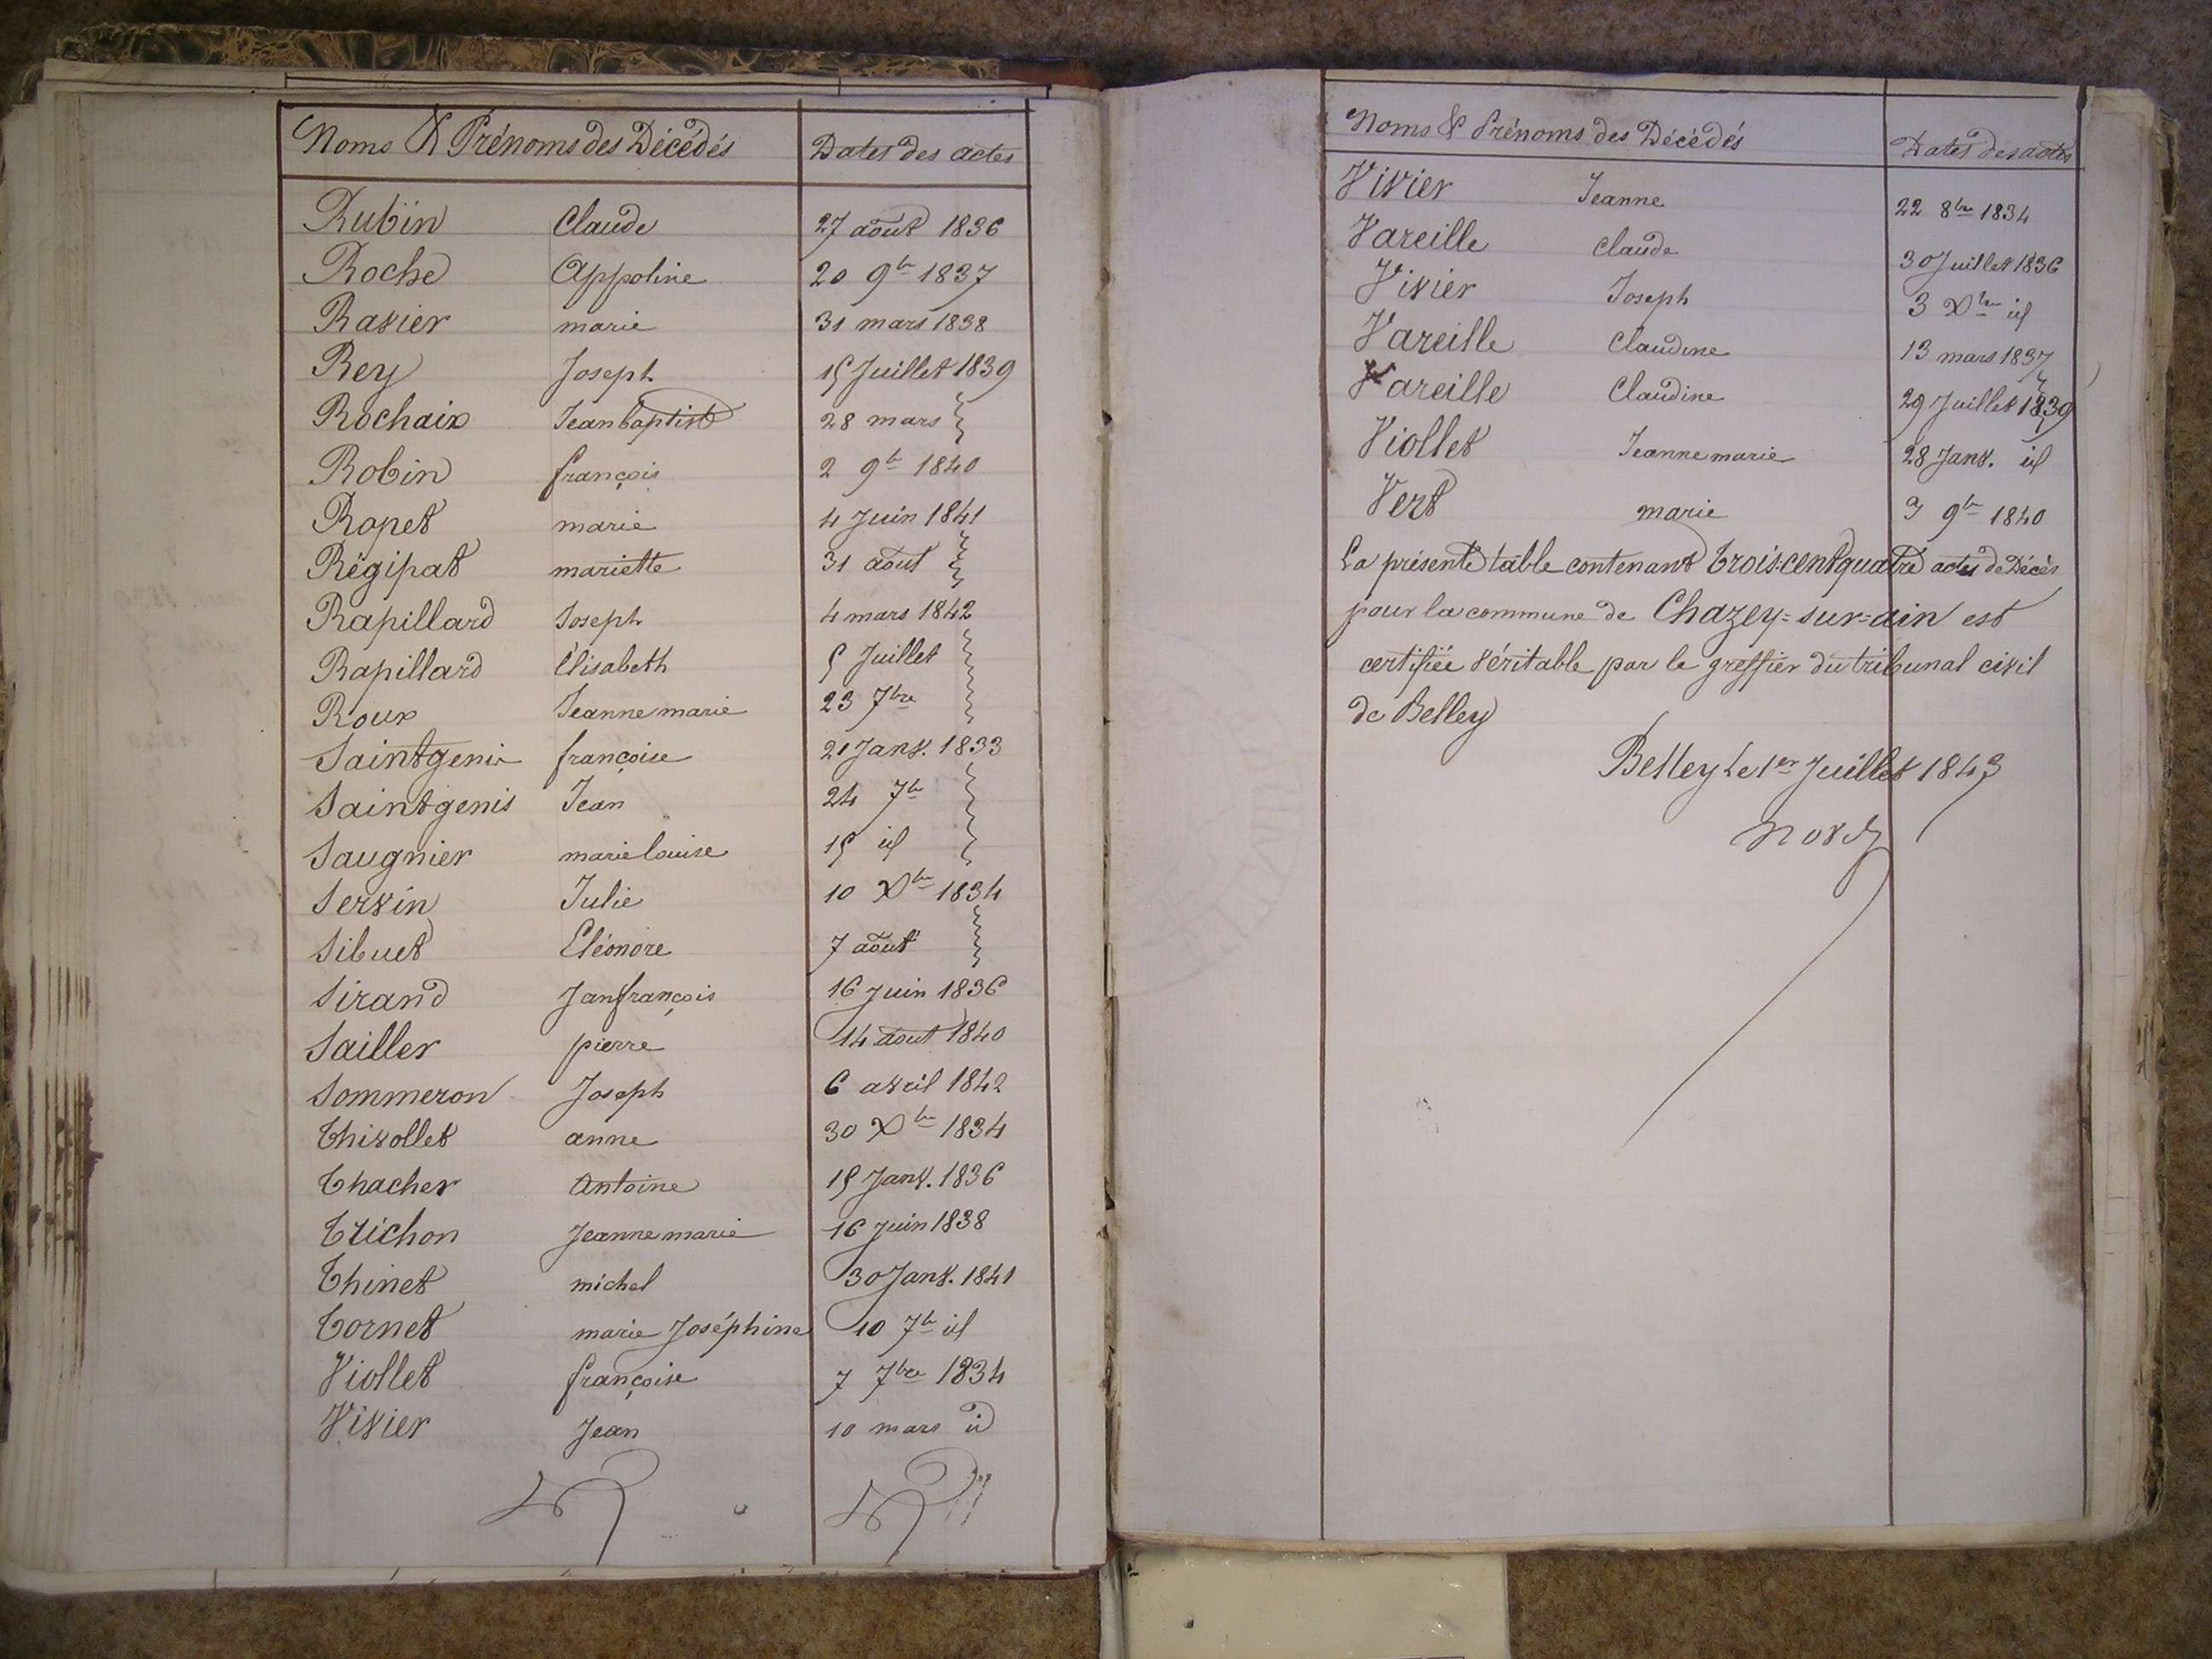 Noms & Prénoms des Décédés Dates des actes
Rubin Claude 27 août 1836
Roche Appoline 20 9bre 1837
Ravier marie 31 mars 1838
Rey Joseph 15 Juillet 1839
Rochaix Jean baptiste 28 mars
Robin françois 2 9bre 1840
Ropet marie 4 Juin 1841
Régipat mariette 31 août
Rapillard Joseph 4 mars 1842
Rapillard Élisabeth 5 Juillet
Roux Jeanne marie 23 7bre
Saintgenis françoise 21 Janv. 1833
Saintgenis Jean 24 7bre
Saugnier marie louise 15 id
Servin Julie 10 Xbre 1834
Sibuet Eléonore 7 août
Sirand Jean françois 16 Juin 1836
Sailler pierre 14 aout 1840
Sommeron Joseph 6 avril 1842
Thivollet anne 30 Xbre 1834
Thacher Antoine 15 Janv. 1836
Trichon Jeanne marie 16 Juin 1838
Thinet michel 30 Janv. 1841
Tornet marie Joséphine 10 7bre id
Viollet françoise 7 7bre 1834
Vivier Jean 10 mars id
Noms & Prénoms des Décédés Dates des actes
Vivier Jeanne 22 8bre 1834
Vareille Claude 30 Juillet 1836
Vivier Joseph 3 Xbre id
Vareille Claudine 13 mars 1837
Vareille Claudine 29 Juillet 1839
Viollet Jeanne marie 28 Janv. id
Vert marie 9bre 1840
La présente table contenant trois cent quatre actes de Décès
pour la commune de Chazey=sur=ain est
certifiée véritable par le greffier du tribunal civil
de Belley
Belley le 1er Juillet 1843